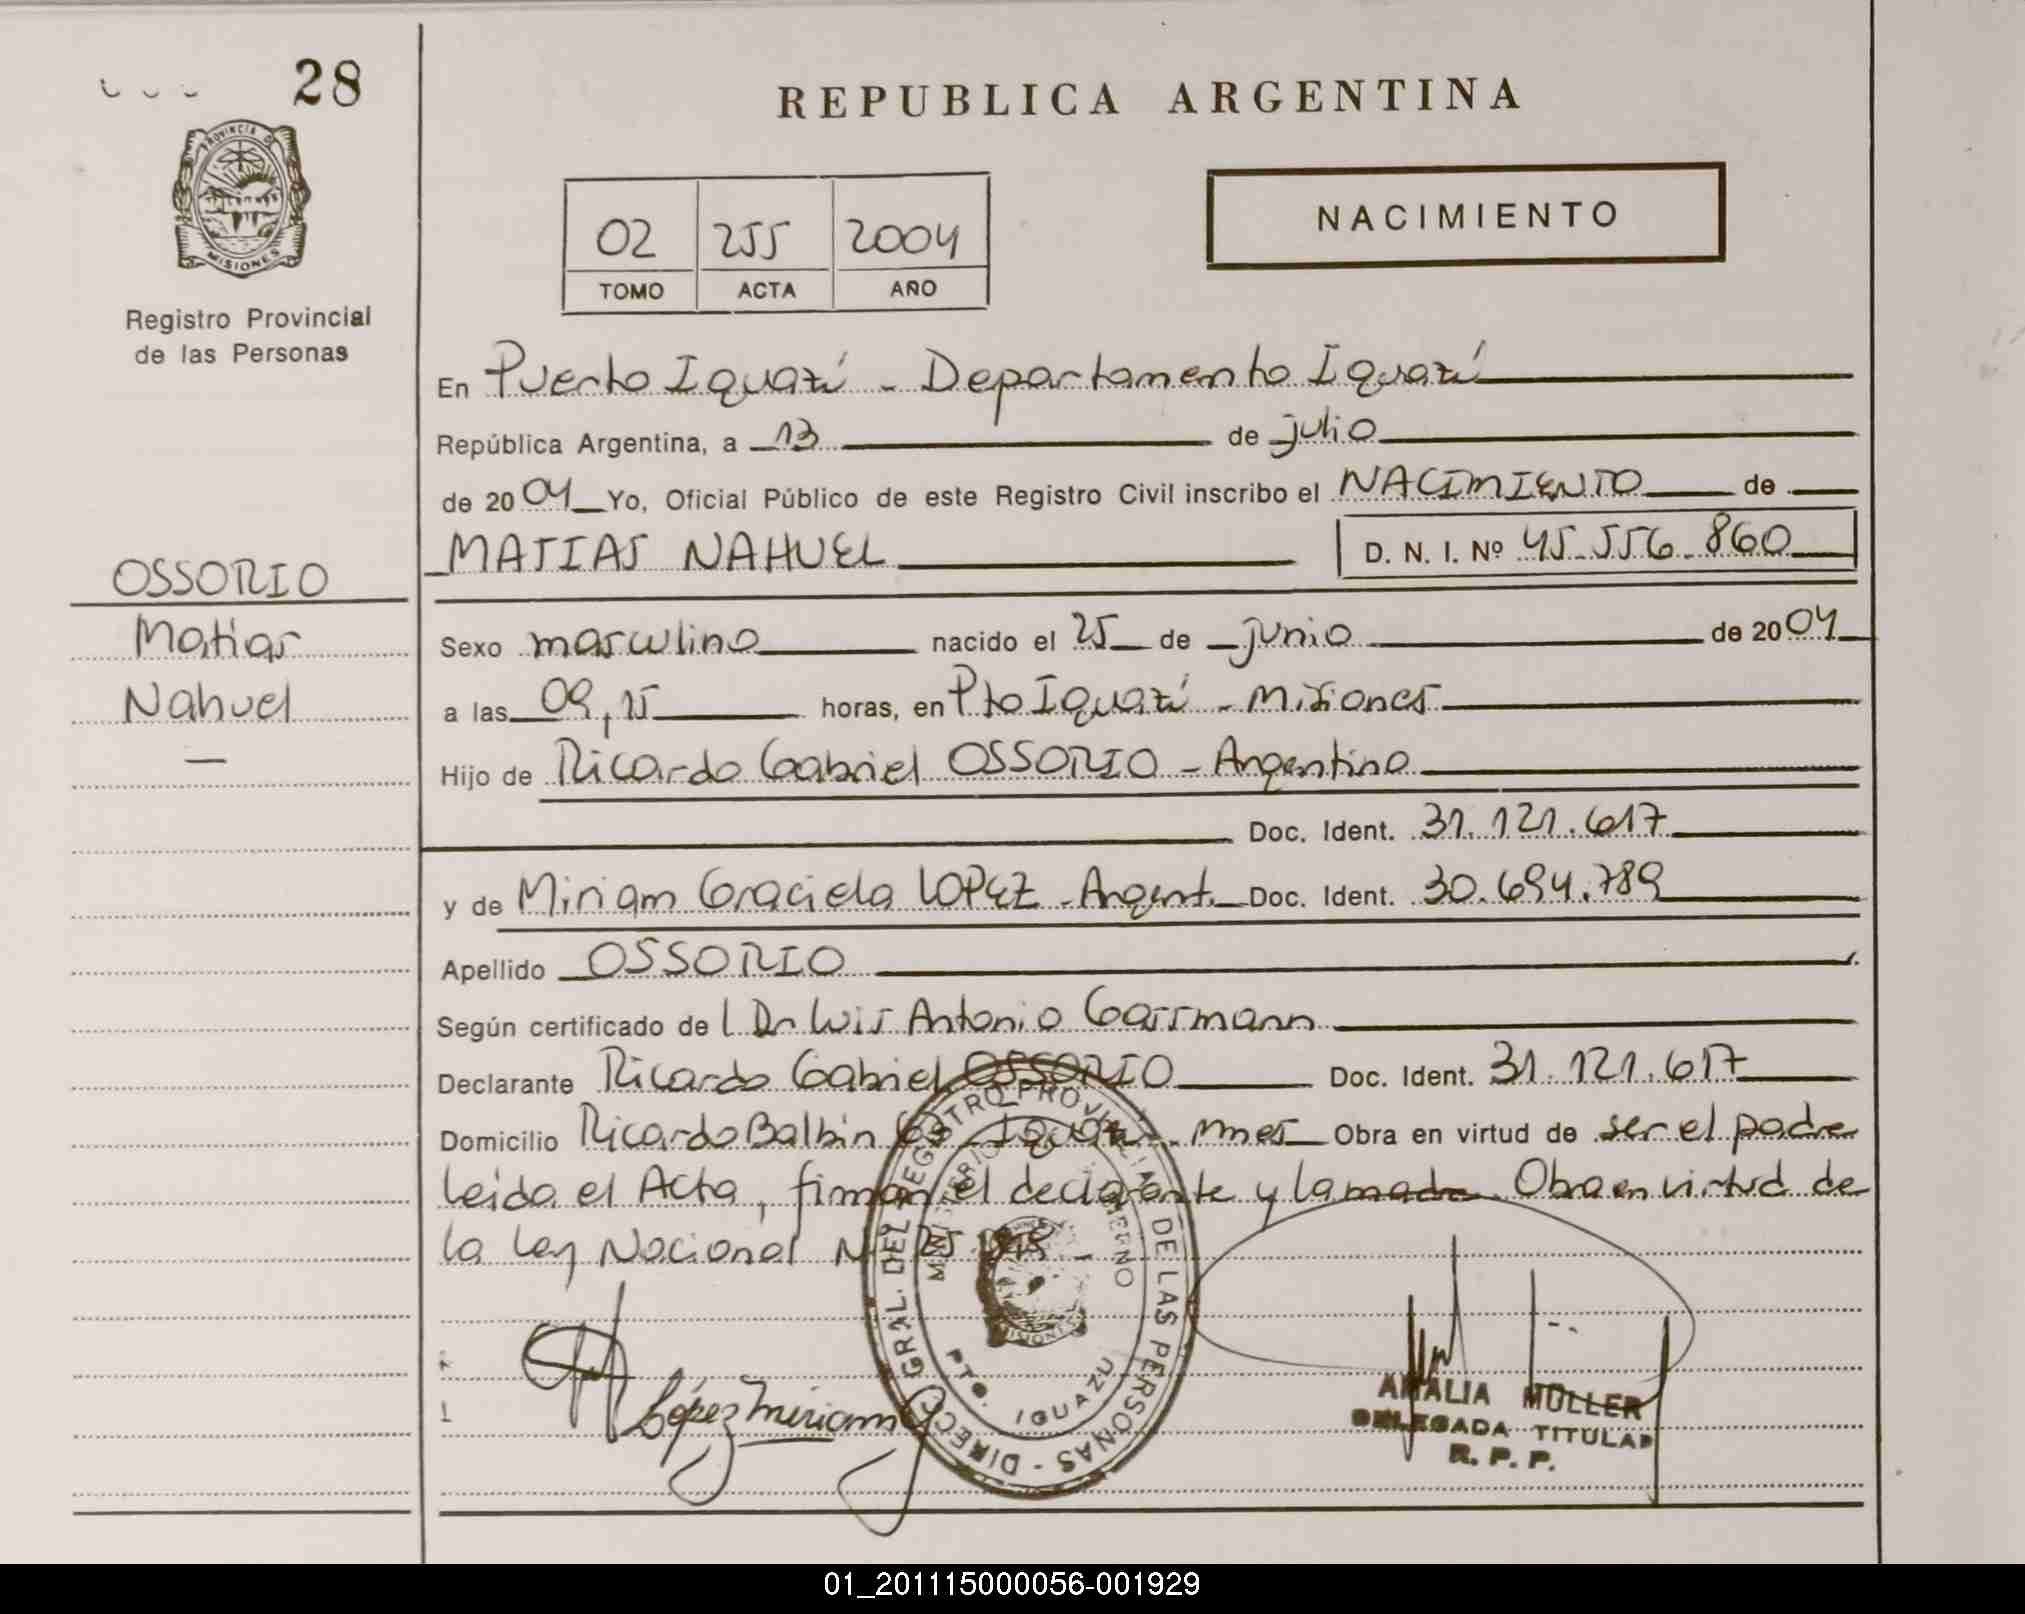 28
PROVINCIA DE
MISIONES
Registro Provincial
de las Personas
REPUBLICA ARGENTINA
02 255 2004
TOMO ACTA AÑO
NACIMIENTO
En Puerto Iguazú - Departamento Iguazú
República Argentina, a 13 de julio
de 2004 Yo, Oficial Público de este Registro Civil inscribo el NACIMIENTO de
MATIAS NAHUEL D. N. I. Nº 45.556.860
OSSORIO
Matias
Nahuel
Sexo masculino nacido el 25 de junio de 2004
a las 09,15 horas, en Pto Iguazú - Misiones
Hijo de Ricardo Gabriel OSSORIO - Argentino
Doc. Ident. 31.121.617
y de Miriam Graciela LOPEZ - Argent. Doc. Ident. 30.694.789
Apellido OSSORIO
Según certificado de l Dr Luis Antonio Gassmann
Declarante Ricardo Gabriel OSSORIO Doc. Ident. 31.121.617
Domicilio Ricardo Balbin Iguazú - Mnes Obra en virtud de ser el padre
Leida el Acta, firman el declarante y la madre. Obra en virtud de
la Ley Nacional Nº
DIRECC. GRAL. DEL REGISTRO PROVINCIAL DE LAS PERSONAS -
MINISTERIO GOBIERNO
MISIONES
PTO. IGUAZU
López Miriam G
AMALIA MÜLLER
DELEGADA TITULAR
R. P. P.
01_201115000056-001929